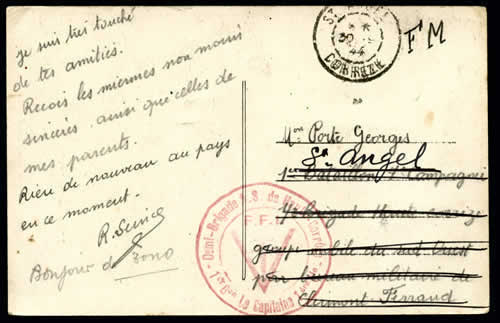 je suis très touché
de tes amitiés.
Recois les miennes non moins
sincères. ainsi que celles de
mes parents.
Rien de nouveau au pays
en ce moment.
Bonjour de Zono
ST ANGEL
44
CORREZE
FM
Mon Porte Georges
St Angel
1er Bataillon Compagnie
1/2 Brigade Haute Corrèze
groupe mobile du sud Ouest
par bureau militaire de
Clermont Ferrand
Demi-Brigade A.S. de
F.F.I.
Le Capitaine